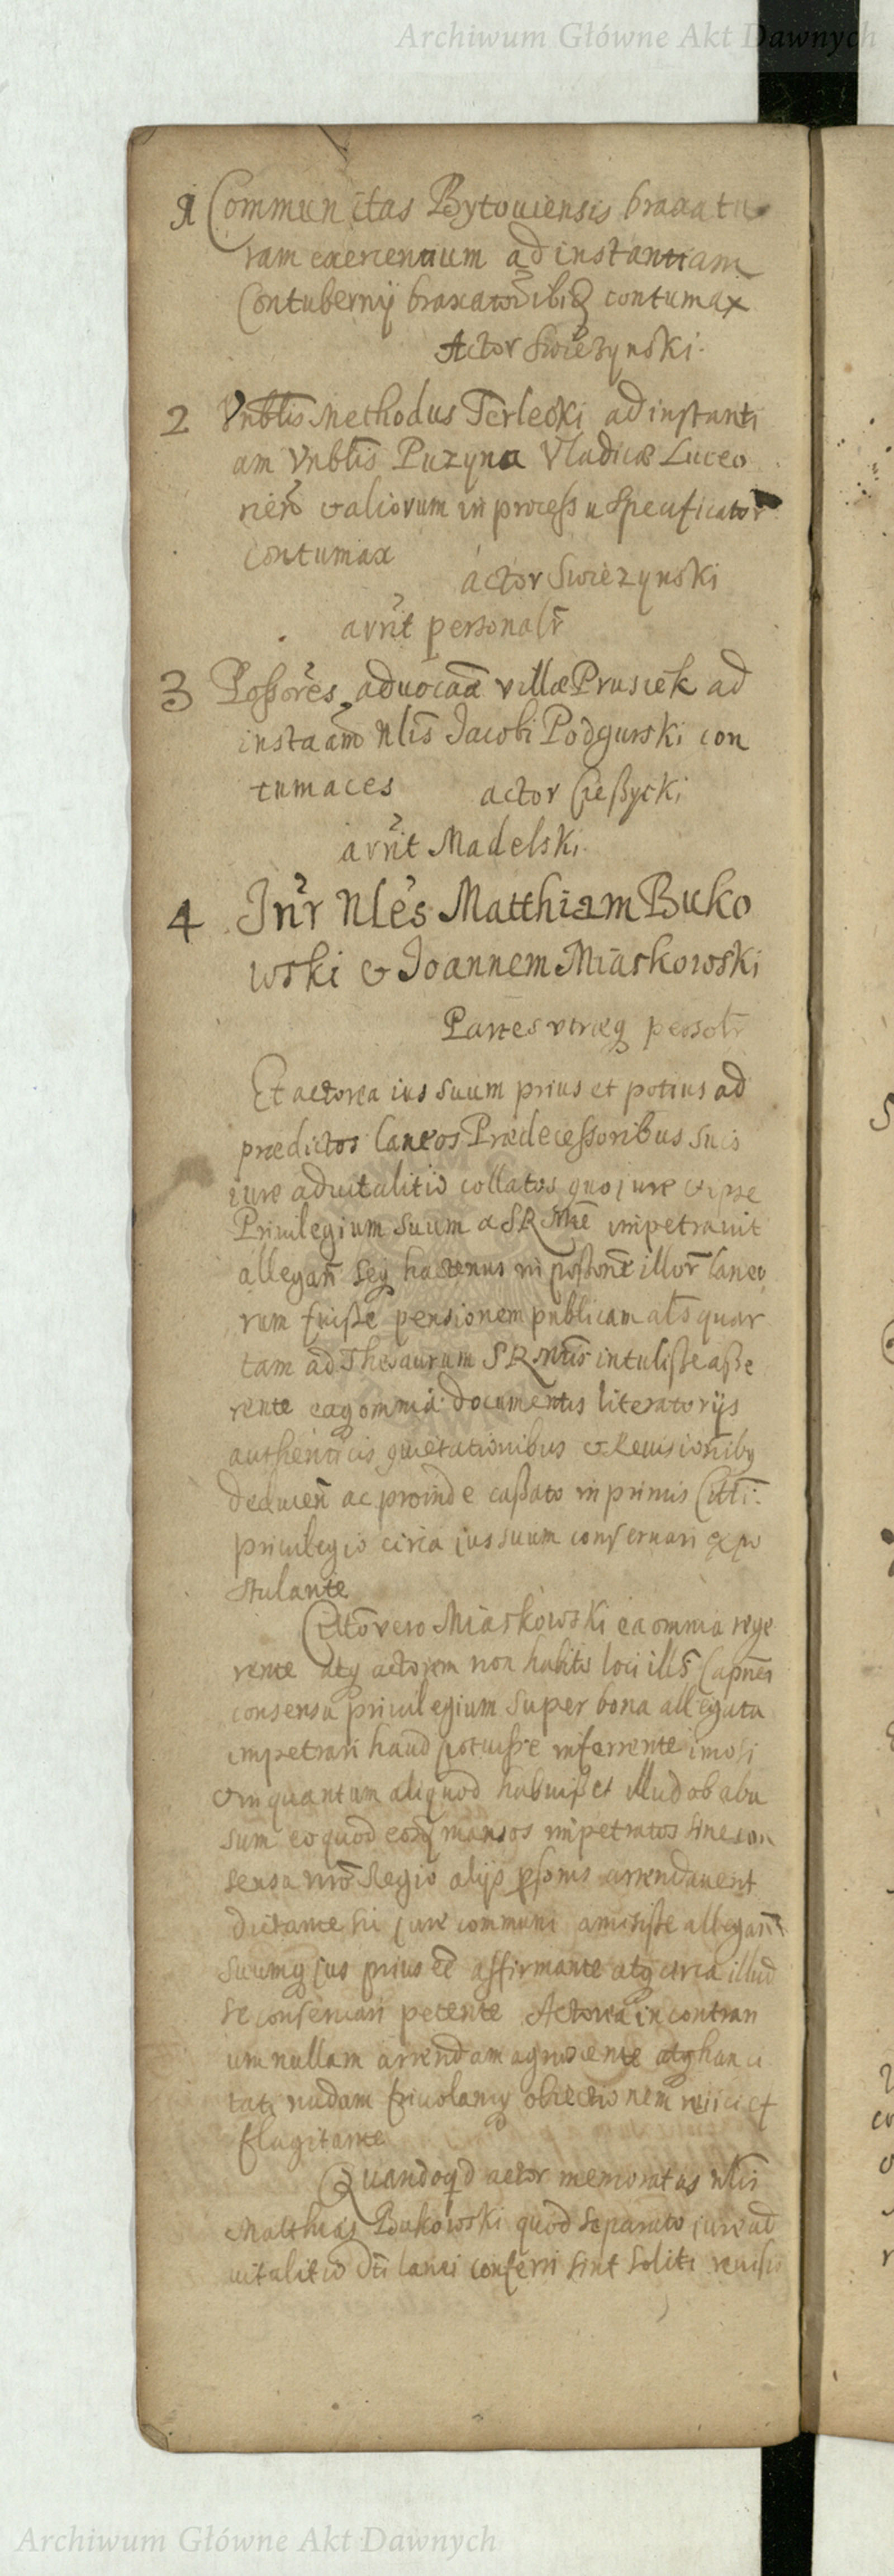 Archiwum Główne Akt Dawnych
1 Communitas Bytouiensis braxatu
ram exercentium ad instantiam
Contubernÿ braxator ibiq contumax
Actor Swiezynski.
2 Vnblis Methodus Terlecki ad instanti
am Vnblis Puzyna Vladicæ Luceo
rień & aliorum in processu specificator
contumax
actor Swiezynski
avrit personalr
3 Possores aduocaa villæ Prusiek ad
instaam Nlis Jacobi Podgurski con
tumaces actor Cieszycki
avrit Madelski
4 Inr Nles Matthiam Buko
wski & Joannem Miaskowski
Partes vtræq persolr
Et actorea ius suum prius et potius ad
prædictos laneos Prædecessoribus suis
iure aduitalitio collatos quo jure & ipse
Priuilegium suum a SRMtte impetrauit
allegan seq hactenus in possone illor laneo
rum fuisse pensionem publicam als quar
tam ad Thesaurum SRMtis intulisse asse
rente eaq omnia documentis literatorijs
authenticis quietationibus & Reuisionibq
deducen ac proinde cassato in primis Citti
priuilegio circa ius suum conseruari expo
stulante
Citto vero Miaskowski ea omnia rege
rente atq actorem non habito loci illis Capnei
consensu priuilegium super bona allegata
impetrari haud potuisse inferrente imo si
& in quantum aliquod habuisset illud ob abu
sum eo quod eosdq mansos impetratos sine con
sensu nro Regio alijs psonis arrendauerit
dictante si jure communi amisisse allegan
suumq jus prius ee affirmante atq circa illud
se conseruari petente Actorea in contrari
um nullam arrendam agnoscente atq hanc
tatq nudam friuolamq obiectionem reiici
flagitante
Quandoqd actor memoratus Nlis
Matthias Bukowski quod separato iure ad
uitalitio dti lanei conferri sint soliti reuisio
Archiwum Główne Akt Dawnych